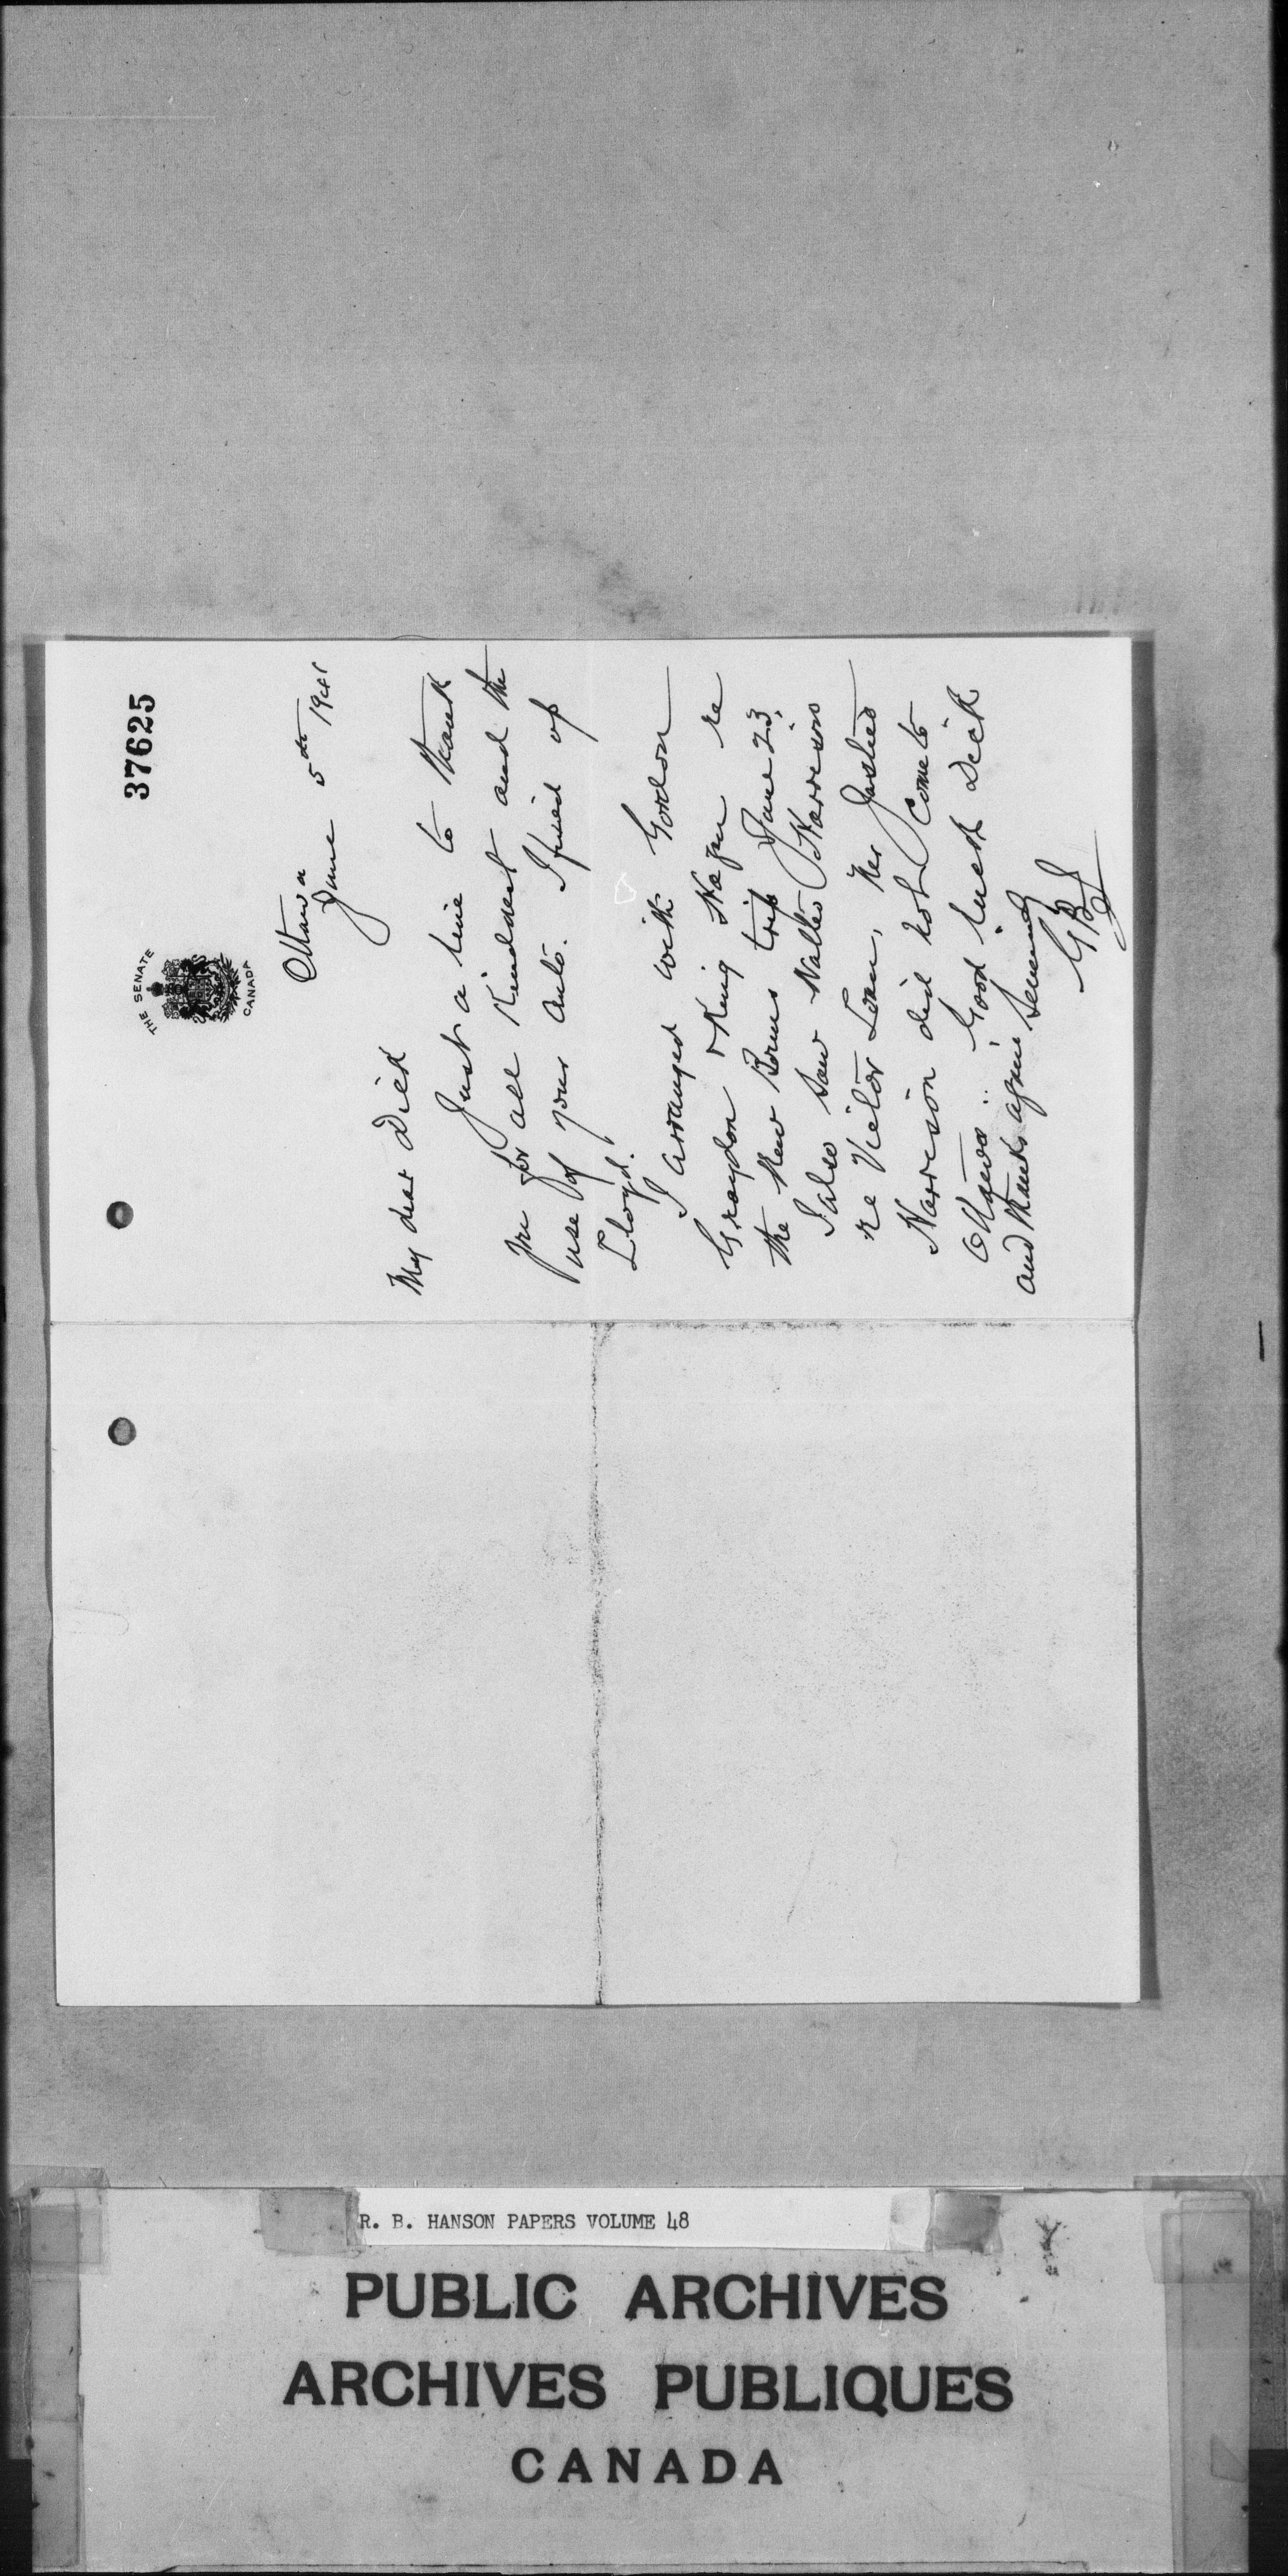 37625
THE SENATE
CANADA
Ottawa
June 5th 1941
My dear Dick
Just a line to thank
you for all kindness and the
use of your auto. I fixed up
Lloyd.
I arranged with Gordon
Graydon & King Hazen re
the New Bruns trip June 23.
I also saw Walter Harrison
re Victor Loan, Mr Justice
Harrison did not come to
Ottawa. Good luck Dick
and thanks again sincerely
GBJ
R. B. HANSON PAPERS VOLUME 48
PUBLIC ARCHIVES
ARCHIVES PUBLIQUES
CANADA